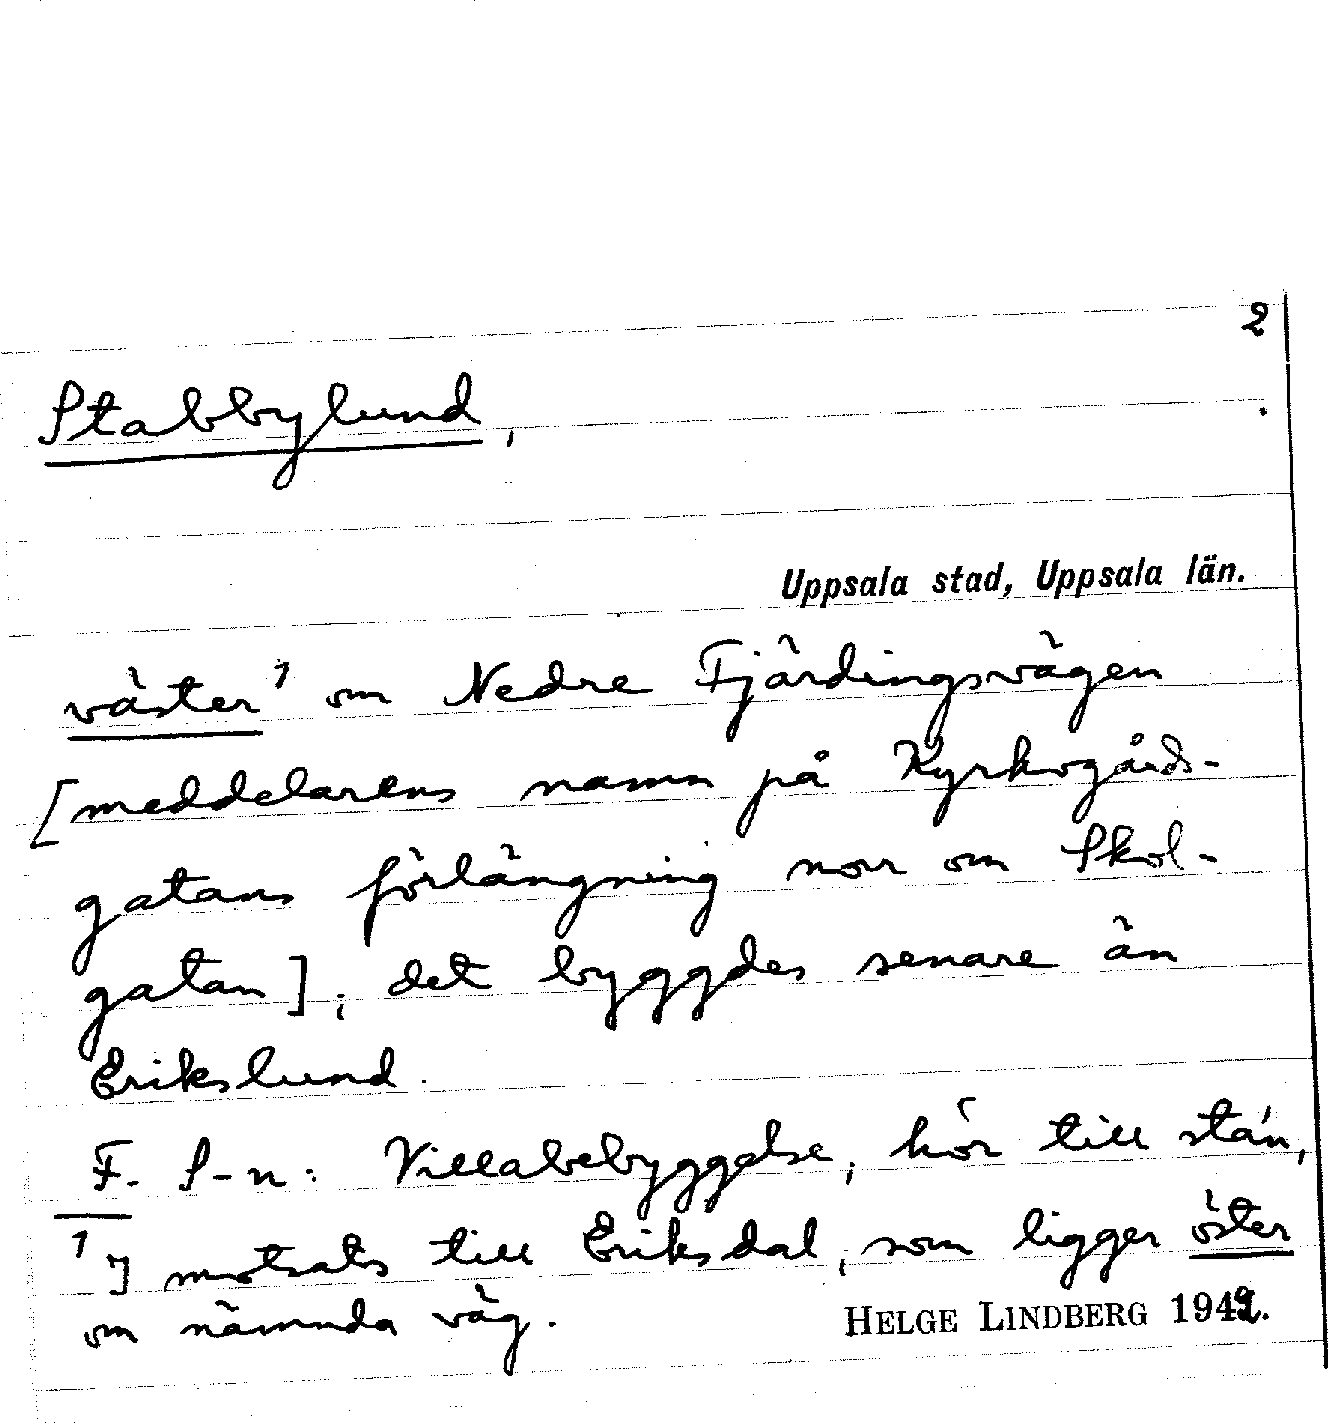 2
Stabbylund,
Uppsala stad, Uppsala län.
väster¹ om Nedre Fjärdingsvägen
[meddelarens namn på Kyrkogårds-
gatans förlängning norr om Skol-
gatan]; det byggdes senare än
Erikslund.
F. S-n: Villabebyggelse, hör till sta'n,
¹] motsats till Eriksdal, som ligger öster
om nämnda väg.
HELGE LINDBERG 194